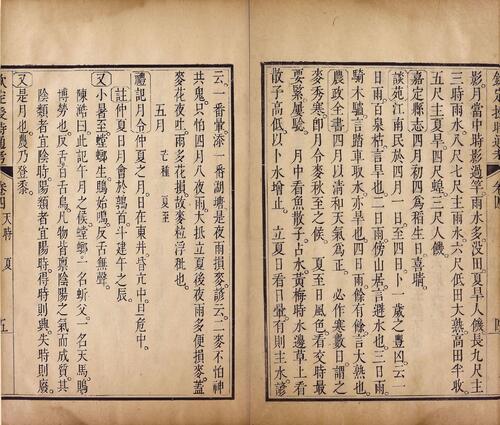 影月當中時影過竿雨水多沒田夏旱人饑長九尺主
三時雨水八尺七尺主雨水六尺低田大熟高田半收
五尺主夏旱四尺蝗三尺人饑
嘉定縣志四月初四為稻生日喜晴
談苑江南民於四月一日至四日卜一歲之豐凶云一
日雨百泉枯言旱也二日雨傍山居言避水也三日雨
騎木驢言踏車取水亦旱也四日雨餘有餘言大熟也
農政全書四月以清和天氣為正 必作寒數日謂之
麥秀寒即月令麥秋至之候 夏至日風色看交時最
要緊屢驗 月中看魚散子占水黃梅時水邊草上看
散子高低以卜水增止 立夏日看日暈有則主水諺
云一番暈添一番湖塘是夜雨損麥諺云二麥不怕神
共鬼只怕四月八夜雨大抵立夏後夜雨多便損麥蓋
麥花夜吐雨多花損故麥粒浮秕也
五月 芒種 夏至
禮記月令仲夏之月日在東井昏亢中旦危中
註仲夏日月會於鶉首斗建午之辰
又小暑至螳螂生鵙始鳴反舌無聲
陳澔曰此記午月之候螳螂一名蚚父一名天馬鵙
博勞也反舌百舌鳥凡物皆稟陰陽之氣而成質其
陰類者宜陰時陽類者宜陽時得時則興失時則廢
又是月也農乃登黍
欽定授時通考 卷四 天時 夏 五